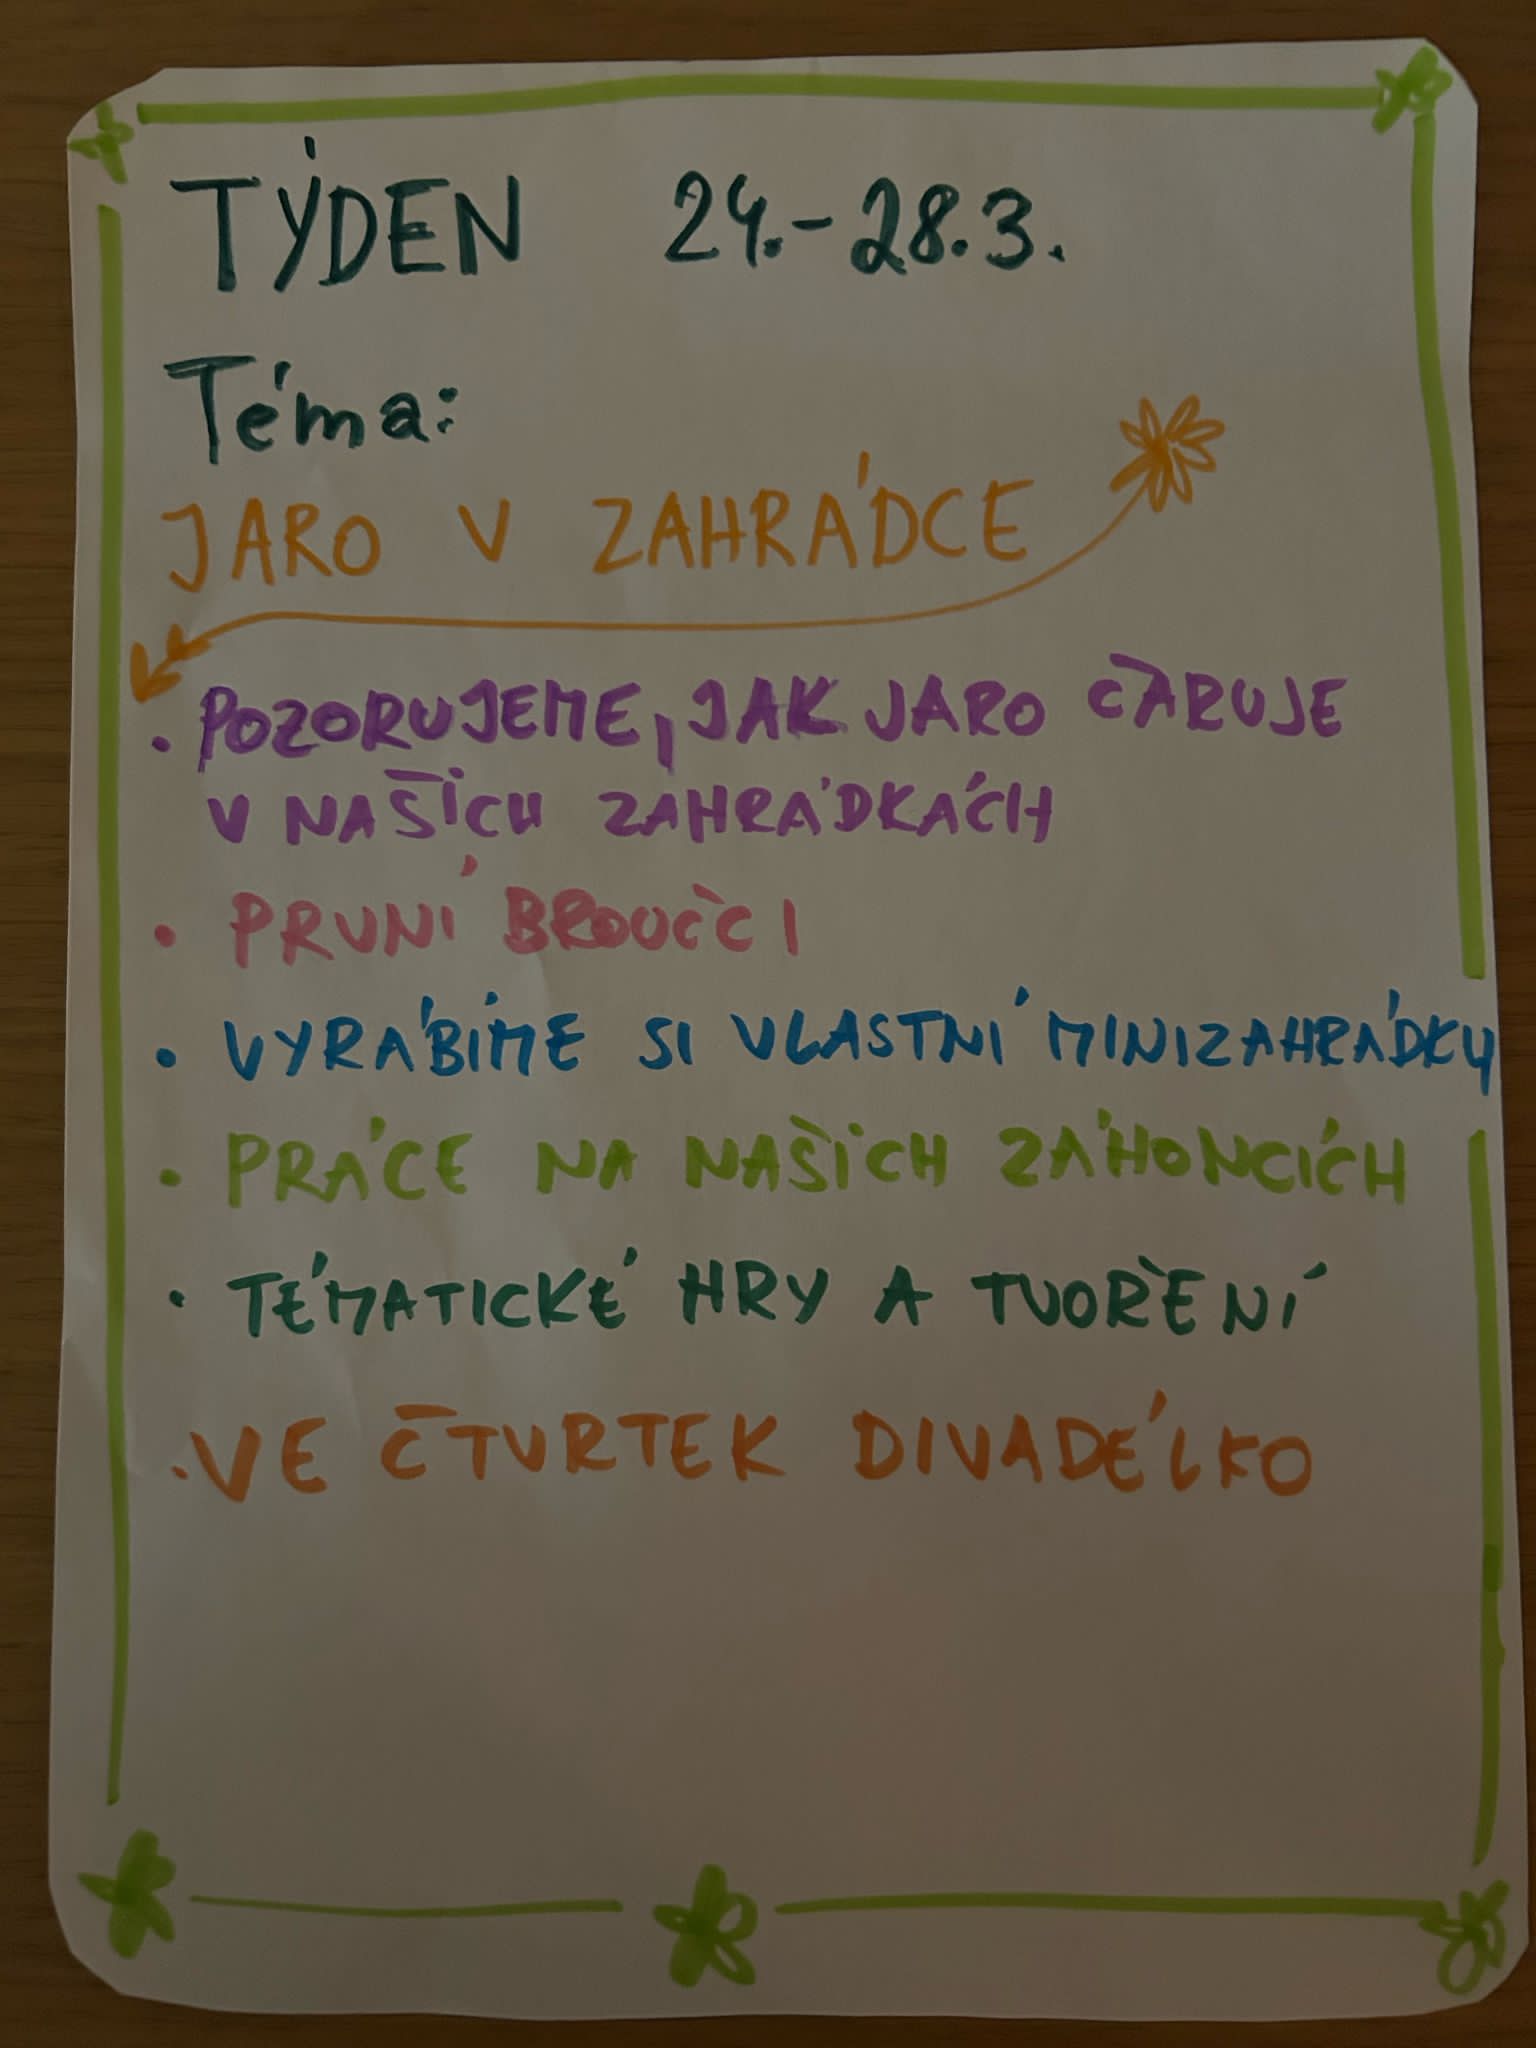 TÝDEN 24.-28.3.
Téma:
JARO V ZAHRÁDCE
• POZORUJEME, JAK JARO ČARUJE
V NAŠICH ZAHRÁDKÁCH
• PRVNÍ BROUČCI
• VYRÁBÍME SI VLASTNÍ MINIZAHRÁDKY
• PRÁCE NA NAŠICH ZÁHONCÍCH
• TÉMATICKÉ HRY A TVOŘENÍ
• VE ČTVRTEK DIVADÉLKO